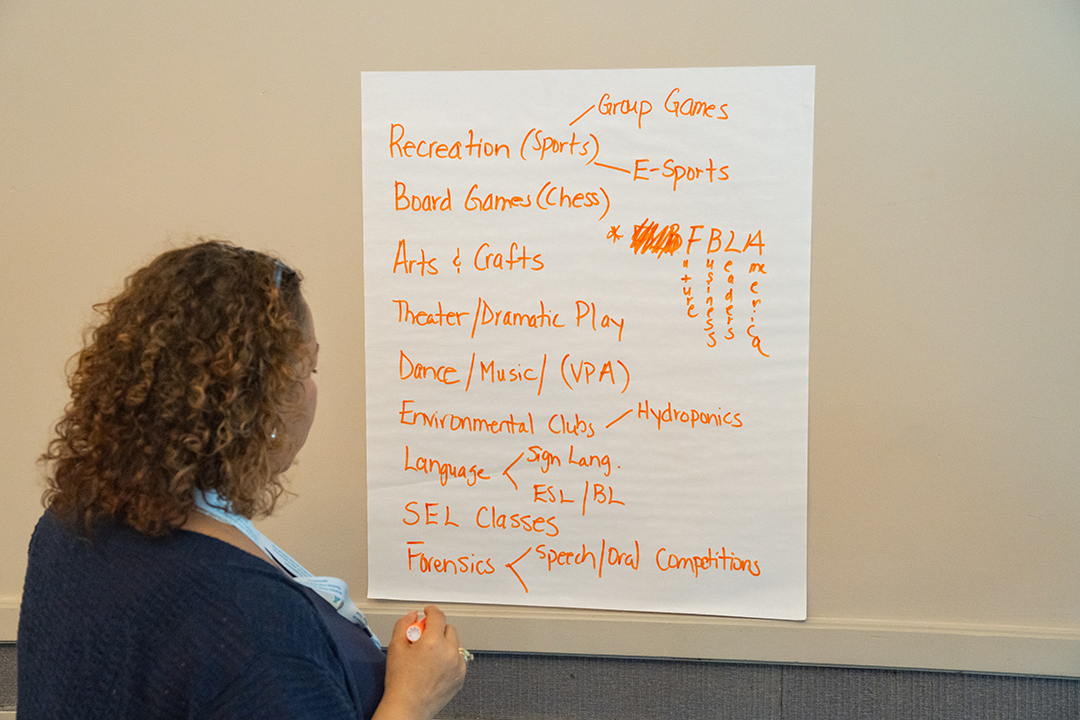 Group Games
Recreation (Sports)
E-Sports
Board Games (Chess)
* FBLA
Future
Business
Leaders
America
Arts & Crafts
Theater/Dramatic Play
Dance/Music/ (VPA)
Environmental Clubs
Hydroponics
Language
Sign Lang.
ESL/BL
SEL Classes
Forensics
Speech/Oral Competitions